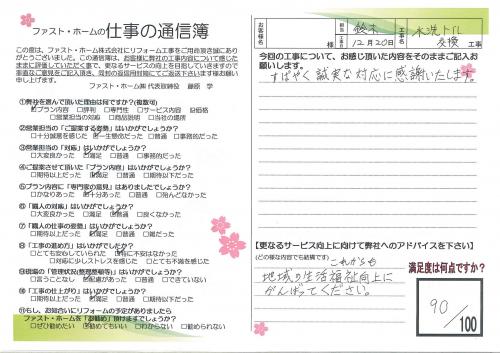 ファスト・ホームの仕事の通信簿
この度は、ファスト・ホーム株式会社にリフォーム工事をご用命頂き誠にあり
がとうございました。この通信簿は、お客様に弊社の工事内容について感じた
ままに評価していただく事で、更なるサービスの向上を目指していきますので
率直なご意見をご記入頂き、同封の返信用封筒にてご返送下さいます様お願い
申し上げます。
ファスト・ホーム㈱ 代表取締役 藤原 学
①弊社を選んで頂いた理由は何ですか?(複数可)
□プラン内容 □評判 □専門性 □サービス内容 □価格
□営業担当の対応 □商品説明 □当社の場所
②営業担当の「ご提案する姿勢」はいかがでしたか?
□十分誠意を感じた □一生懸命だった □普通 □事務的だった
③営業担当の「対応」はいかがでしたか?
□大変良かった □満足 □普通 □事務的だった
④ご提案させて頂いた「プラン内容」はいかがでしたか?
□期待以上だった □満足 □普通 □期待以下だった
⑤プラン内容に「専門家の意見」はありましたでしょうか?
□かなりあった □十分あった □普通 □殆んどなかった
⑥「職人の対応」はいかがでしたでしょうか?
□大変良かった □満足 □普通 □良くなかった
⑦「職人の仕事の姿勢」はいかがでしたでしょうか?
□期待以上だった □満足 □普通 □雑だった
⑧「工事の進め方」はいかがでしたでしょうか?
□とても安心していられた □特に不安はなかった
□対応に少しストレスを感じた □とても不満を感じた
⑨現場の「管理状況(整理整頓等)」はいかがでしたでしょうか?
□言うことなし □配慮があった □普通 □できていない
⑩「工事の仕上がり」はいかがでしたでしょうか?
□期待以上だった □満足 □普通 □期待以下だった
⑪もし、お知合いにリフォームの予定がありましたら
ファスト・ホームを「お勧め」頂けますでしょうか?
□ぜひ勧めたい □勧めてもいい □わからない □勧められない
お客様名 担当 鈴木 工事名 水洗トイレ交換 工事
工事日 12月20日
今回の工事について、お感じ頂いた内容をそのままご記入お
願いします。
すばやく誠実な対応に感謝いたします。
【更なるサービス向上に向けて弊社へのアドバイスを下さい】
(どの様な内容でも結構です) これからも
地域の生活福祉向上に
がんばってください。
満足度は何点ですか?
90
/100